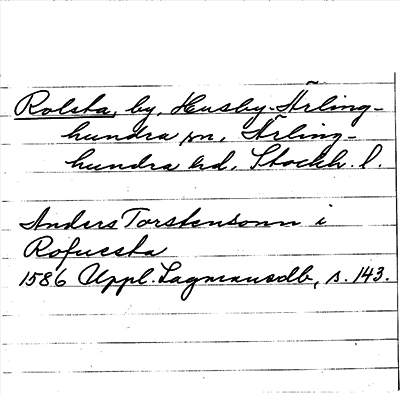 Rolsta, by, Husby-Ärling-
hundra sn, Ärling-
hundra hd, Stockh. l.
Anders Torstensonn i
Rofuesta
1586 Uppl. Lagmansdb, s. 143.